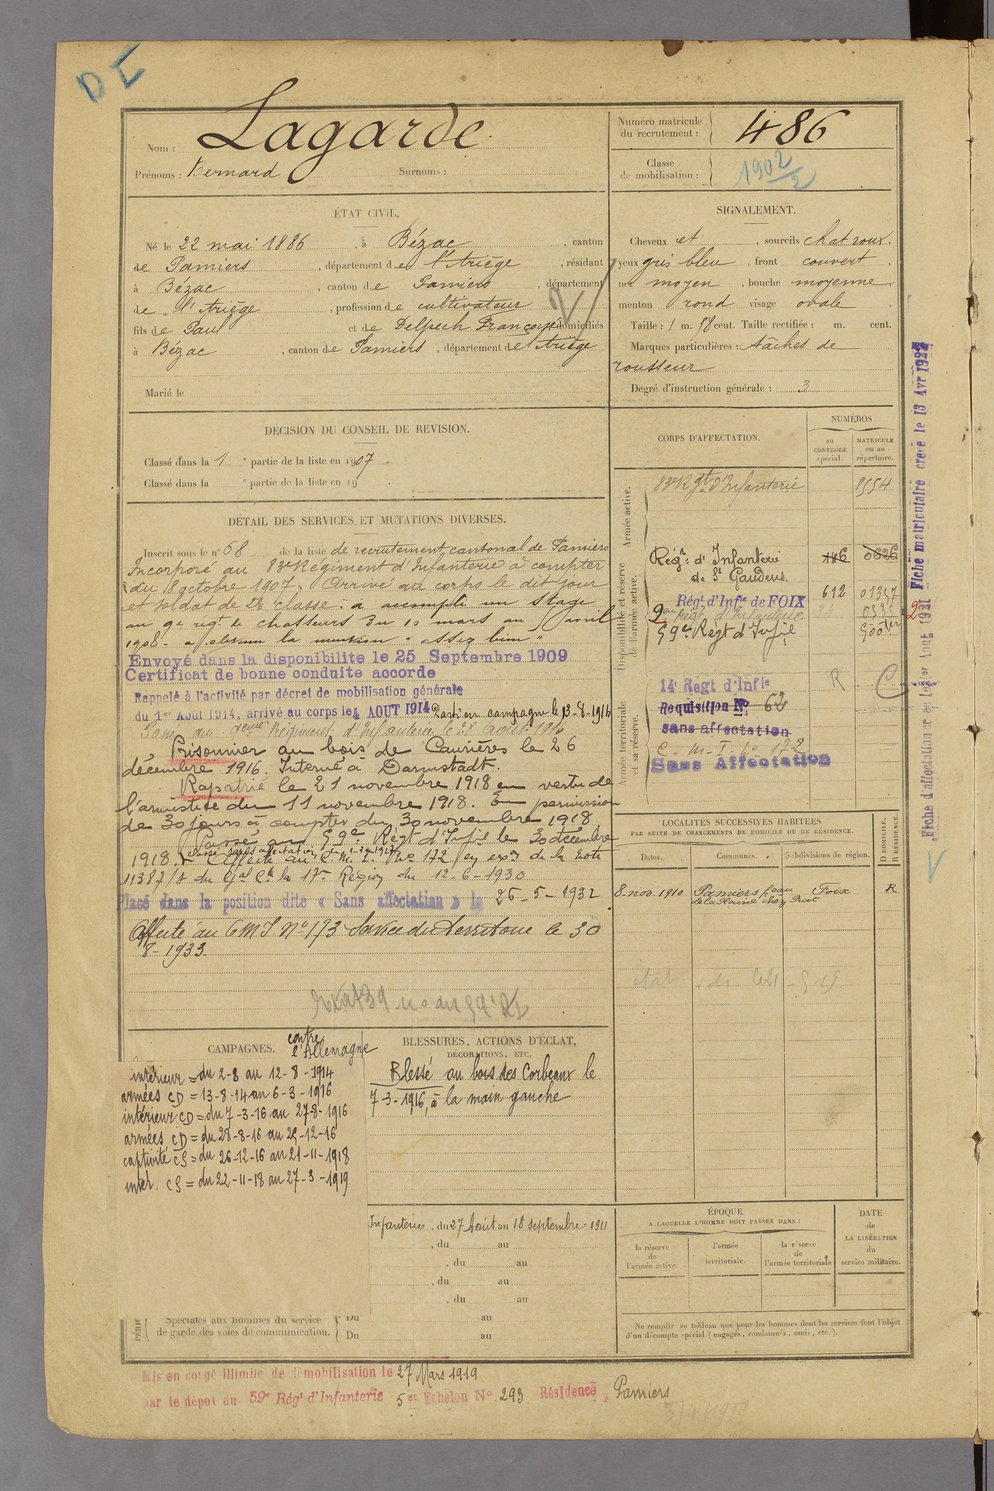 DE
Nom : Lagarde
Prénoms : Bernard Surnoms :
Numéro matricule du recrutement : 486
Classe de mobilisation : 1902/2
ÉTAT CIVIL.
Né le 22 mai 1886, à Bézac, canton
de Pamiers, département de l'Ariège, résidant
à Bézac, canton de Pamiers, département
de l'Ariège, profession de cultivateur
fils de Paul et de Delpech Françoise domiciliés
à Bézac, canton de Pamiers, département de l'Ariège
Marié le
SIGNALEMENT.
Cheveux et, sourcils chat roux.
yeux gris bleu, front couvert,
nez moyen, bouche moyenne
menton rond visage ovale
Taille : 1 m. 58 cent. Taille rectifiée : m. cent.
Marques particulières : Tâches de
rousseur
Degré d'instruction générale : 3
DÉCISION DU CONSEIL DE REVISION.
Classé dans la 1 e partie de la liste en 1907.
Classé dans la e partie de la liste en 19
DÉTAIL DES SERVICES ET MUTATIONS DIVERSES.
Inscrit sous le n° 68 de la liste de recrutement cantonal de Pamiers
Incorporé au 83e Régiment d'Infanterie à compter
du 8 octobre 1907. Arrivé au corps le dit jour
et soldat de 2e classe : a accompli un stage
au 9e régt de chasseurs du 10 mars au avril
1908 - a obtenu la mention "assez bien"
Envoyé dans la disponibilite le 25 Septembre 1909
Certificat de bonne conduite accorde
Rappelé à l'activité par décret de mobilisation générale
du 1er Août 1914, arrivé au corps le 4 AOUT 1914 Parti en campagne le 13-8-1914
Passé au Régiment d'Infanterie le 28 août 1916
Prisonnier au bois de Caurières le 26
décembre 1916. Interné à Darmstadt.
Rapatrié le 21 novembre 1918 en vertu de
l'armistice du 11 novembre 1918. En permission
de 30 jours à compter du 30 novembre 1918
Passé au 59e Régt d'Infie le 30 décembre
1918.
Affecté au C.M.I. No 172 en exon de la note
11387/8 du Gal Ct la 17e Région du 12-6-1930
Placé dans la position dite « Sans affectation » le 26-5-1932
Affecté au CMI No 173 Service du Territoire le 30
8-1933.
CORPS D'AFFECTATION.
NUMÉROS
au CONTRÔLE spécial.
MATRICULE ou au répertoire.
Armée active.
83e Rgt d'Infanterie 2554
Disponibilité et réserve de l'armée active.
Régt d'Infanterie 0626
de St Gaudens.
Régt d'Infie de FOIX 612 01337
59e Régt d'Infie
Armée territoriale et sa réserve.
14e Regt d'Infie R C
Requisition No 62
sans affectation
C.M.I. No 172
Sans Affectation
Fiche matriculaire creée le 13 Avr 1927
LOCALITÉS SUCCESSIVES HABITÉES
PAR SUITE DE CHANGEMENTS DE DOMICILE OU DE RÉSIDENCE.
Dates. Communes. Subdivisions de région. D DOMICILE. R RÉSIDENCE.
8 nov. 1910 Pamiers Foix R
CAMPAGNES. contre l'Allemagne
intérieur = du 2-8 au 12-8-1914
armées CD = 13-8-14 au 6-3-1916
intérieur CD = du 7-3-16 au 27-8-1916
armées CD = du 28-8-16 au 25-12-16
captivité CS = du 26-12-16 au 21-11-1918
inter. CS = du 22-11-18 au 27-3-1919
BLESSURES, ACTIONS D'ÉCLAT,
DÉCORATIONS, ETC.
Blessé au bois des Corbeaux le
7-3-1916, à la main gauche
Infanterie, du 27 Août au 18 septembre 1911
, du au
, du au
, du au
, du au
Spéciales aux hommes du service de garde des voies de communication.
Du au
Du au
ÉPOQUE
A LAQUELLE L'HOMME DOIT PASSER DANS :
la réserve de l'armée active.
l'armée territoriale.
la réserve de l'armée territoriale
DATE de LA LIBÉRATION du service militaire.
Ne remplir ce tableau que pour les hommes dont les services font l'objet
d'un décompte spécial (engagés, condamnés, omis, etc.).
Mis en congé illimité de démobilisation le 27 Mars 1919
par le dépôt du 59e Régt d'Infanterie 5e Echelon No 293 Résidence, Pamiers